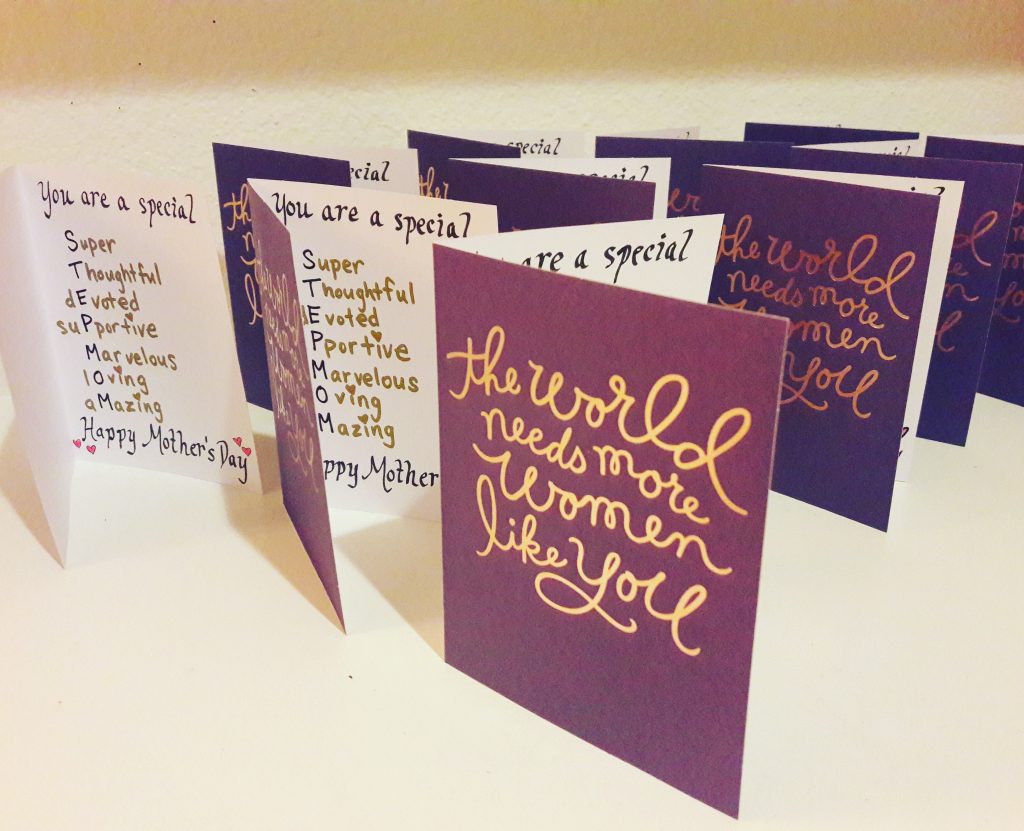 You are a special
Super
Thoughtful
dEvoted
suPportive
Marvelous
lOving
aMazing
Happy Mother's Day
You are a special
Super
Thoughtful
Evoted
Pportive
Marvelous
Oving
Mazing
ppy Mother
are a special
the world
needs more
women
like you
the world
needs more
women
you
ecial
special
special